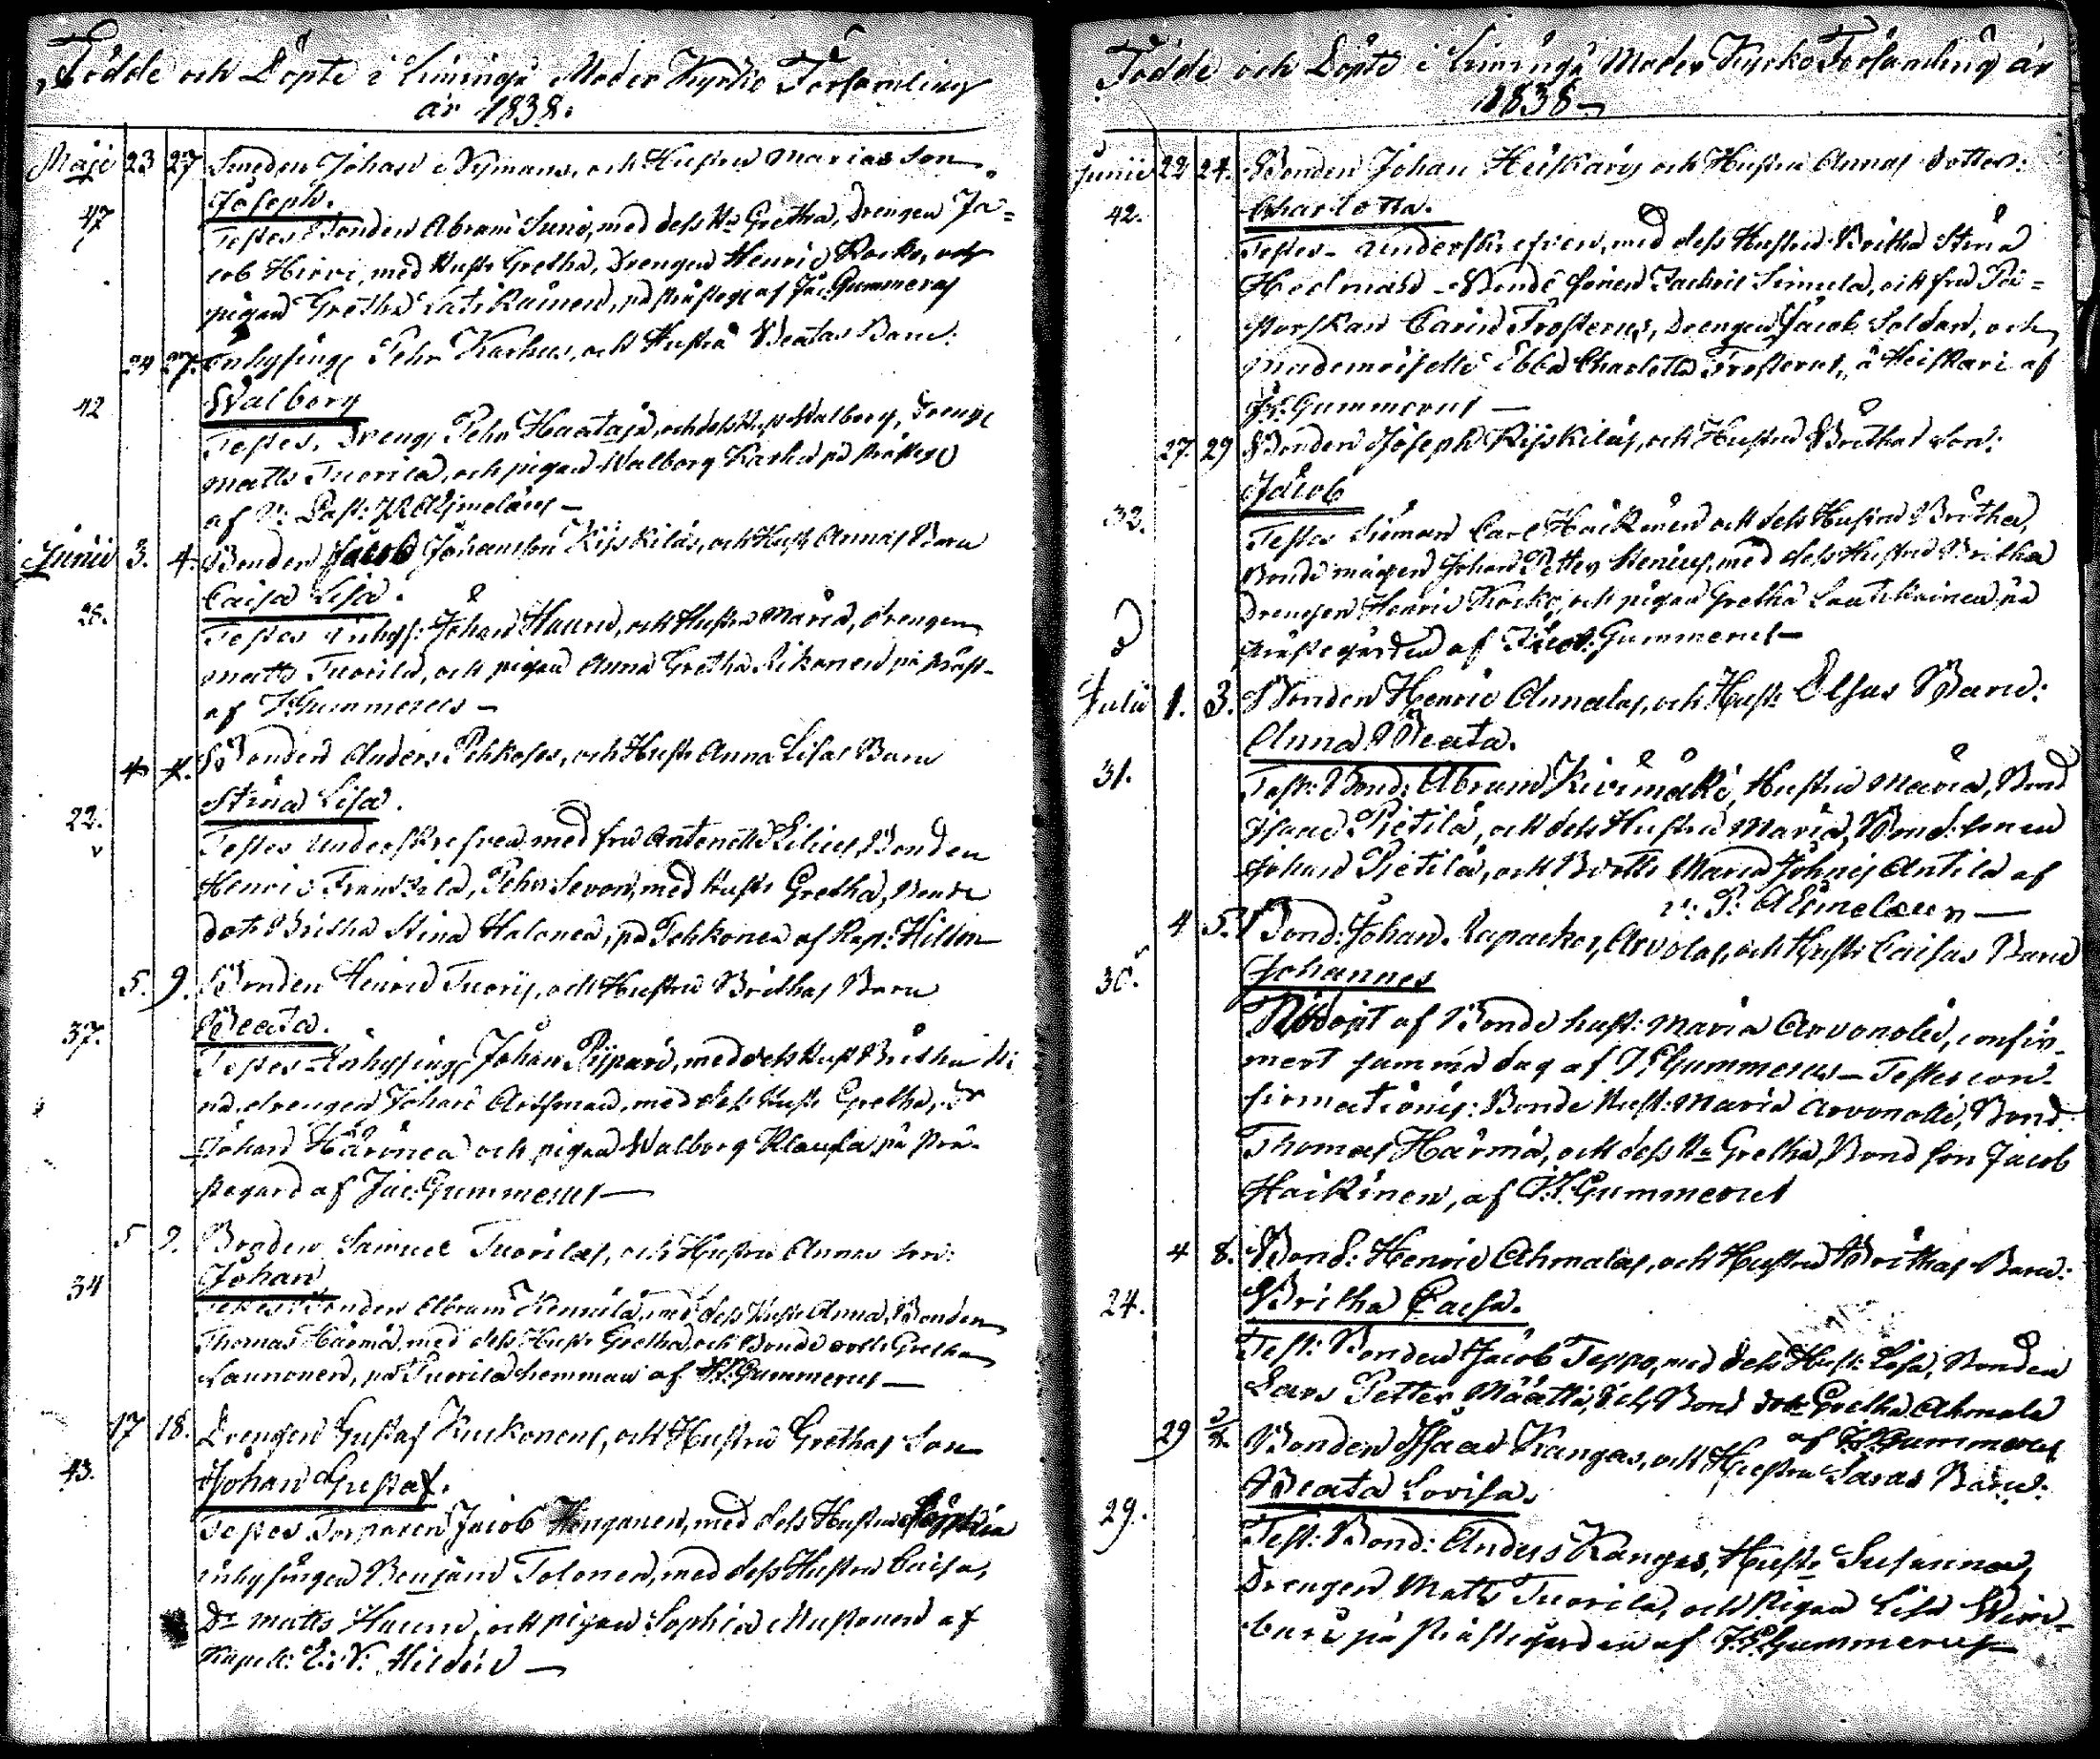 Födde och Döpte i Limingå Moder Kyrko Församling
år 1838.
Maji 23 27 Smeden Johan Nymans, och Hustru Marias Son
Joseph.
47
Testes Bonden Abram Suni, med dess Ha Gretha, Drengen Ja=
cob Hirvi, med Hustr Gretha, Drengen Henric Kocko, och
pigan Gretha Latikainen, på Prästeg: af Jac: Gummerus
24 27. Inhysing Pehr Karhus, och Hustru Beatas Barn:
Walborg
42
Testes, Dreng Pehr Haataja, och dess Hust Walborg, Dreng
Matts Tuorila, och pigan Walborg Karhu på Präste
af V: Past:
Junii 3. 4. Bonden Jacob Johansson Kijskiläs, och Hust Annas Barn
Caisa Lisa.
26.
Testes Inhys: Johan Hauru, och Hustru Maria, drengen
Matts Tuorila, och pigan Anna Gretha Rikonen på Präst-
af Gummerus —
4. 4. Bonden Anders Pehkoses, och Hustr Anna Lisas Barn
Stina Lisa.
22.
Testes Underskrefven med fru Antonette Lilius, Bonden
Henric Frantzila, Pehr Sevon, med Hustr Gretha, Bonde
dotr Britha Stina Halonen, på Pehkonen af Kap: Hilden
5. 9. Bonden Henric Tuoris, och Hustru Brithas Barn
Beata.
37.
Testes Inhysing Johan Pijpari, med dess Hust Britha Sti
na, drengen Johan Artman, med dess Hustr Gretha, Dr
Johan Härönen och pigan Walborg Klaula, på Prä-
stegard af Jac: Gummerus —
5 9. Bonden Samuel Tuorilas, och Hustru Annas Son:
Johan
34
Testes Bonden Abram Kemilä, med dess Hustr Anna, Bonden
Thomas Härmä, med dess Hustr Gretha, och Bonde dottr Gretha
Launonen, på Tuorila hemman af Gummerus —
17 18. Drengen Gustaf Kuckonens, och Hustru Grethas Son
Johan Gustaf.
43.
Testes Torparen Jacob Hänganen, med dess Hustru Sophia
inhysingen Benjam Tolonen, med dess Hustru Caisa,
Dr Matts Hauru, och pigan Sophia Mustonen af
Kapell: E: V: Hildén —
Födde och Döpte i Limingå Moder Kyrko Församling år
1838
Junii 22 24. Bonden Johan Heiskaris och Hustru Annas dotter:
Charlotta.
42.
Testes- Underskrefven, med dess Hustru Britha Stina
Hedman - Bonde sonen Fredric Simula, och fru Pa=
storskan Carin Frosterus, Drengen Jacob Soldan, och
Mademoiselle Ebba Charlotta Frosterus, å Heiskari af
Gummerus —
27. 29 Bonden Joseph Kijskiläs, och Hustru Brithas Son:
Jacob
32.
Testes Simon Carl Häikinen och dess Hustru Britha,
Bonde mågen Johan Petter Stenius, med dess Hustru Britha
Drengen Henric Kocko, och pigan Gretha Lautikainen på
Prästegården af Jacob: Gummerus —
Julii 1. 3. Bonden Henric Annalas, och Hust: Elsas Barn:
Anna Beata.
31.
Test: Bond: Abram Kivimäki, Hustru Maria, Bond
Isaac Pietilä, och dess Hustru Maria, Bond: sonen
Johan Pietilä, och B dottr Maria Johns Antila af
v: P:
4 5. Bond: Johan Lapackos, Arvolas, och Hustr Caisas Barn
Johannes
30.
Nöddöpt af Bonde hust: Maria Arvonoli, confir-
mert samma dag af Gummerus — Testes con-
firmationis: Bonde Hust: Maria Arvonolli, Bond
Thomas Härmä, och dess Ha Gretha, Bond son Jacob
Haikinen, af Gummerus
4 8. Bond: Henric Ahmalas, och Hustru Brithas Barn:
Britha Caisa.
24.
Test: Bonden Jacob Teppo, med dess Hust: Lisa, Bonden
Lars Petter Määttä, och Bond dotr Gretha Ahmala
af Gummerus
29 Bonden Isaac Kangas, och Hustru Saras Barn:
Beata Lovisa.
29.
Test: Bond: Anders Kangas, Hustr Susanna,
Drengen Matts Tuorila, och Pigan Lisa
på Prästegården af Gummerus